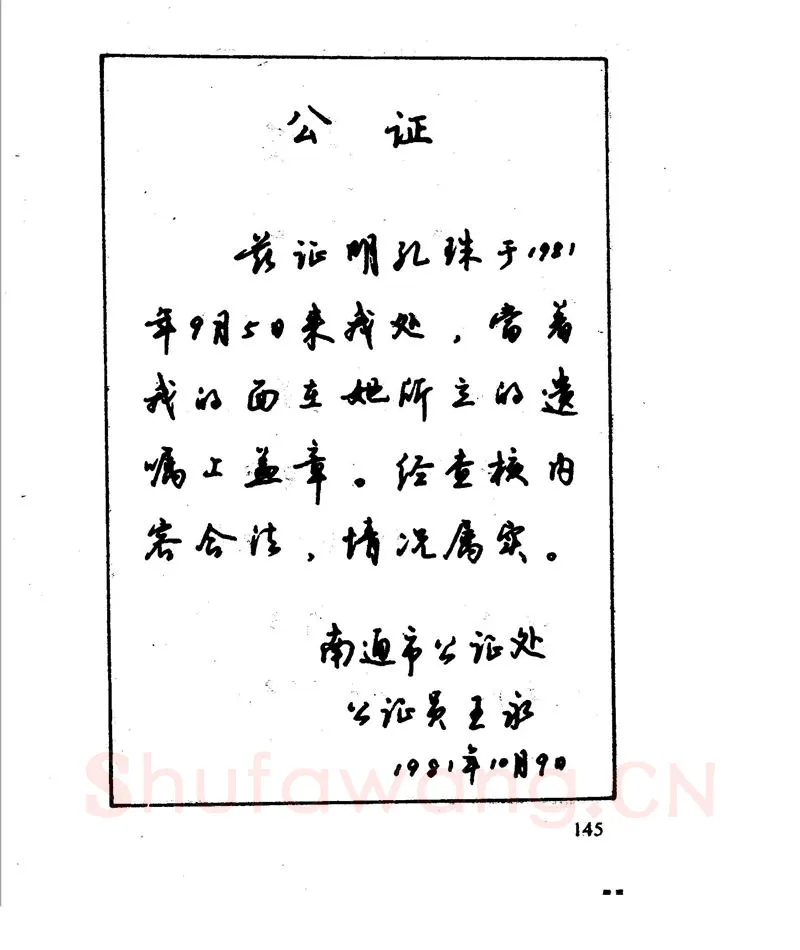 公 证
兹证明孔珠于1981
年9月5日来我处，当着
我的面在她所立的遗
嘱上盖章。经查核内
容合法，情况属实。
南通市公证处
公证员王永
1981年10月9日
Shufawang.CN
145